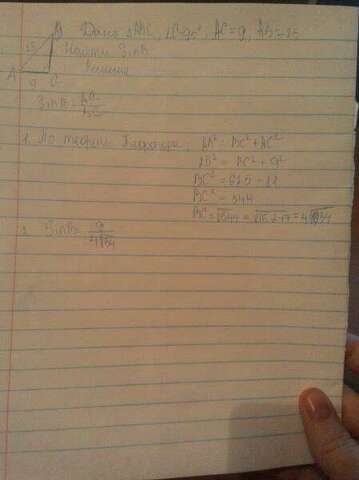 Дано: △ABC, ∠C=90°, AC=9, AB=25
Найти SinB
Решение
B
25
A
C
9
SinB=
1. По теореме Пифагора: AB²=BC²+AC²
25²=BC²+9²
BC²=625-81
BC²=544
BC=√544=√16·2·17=4√34
2. SinB= 9/4√34